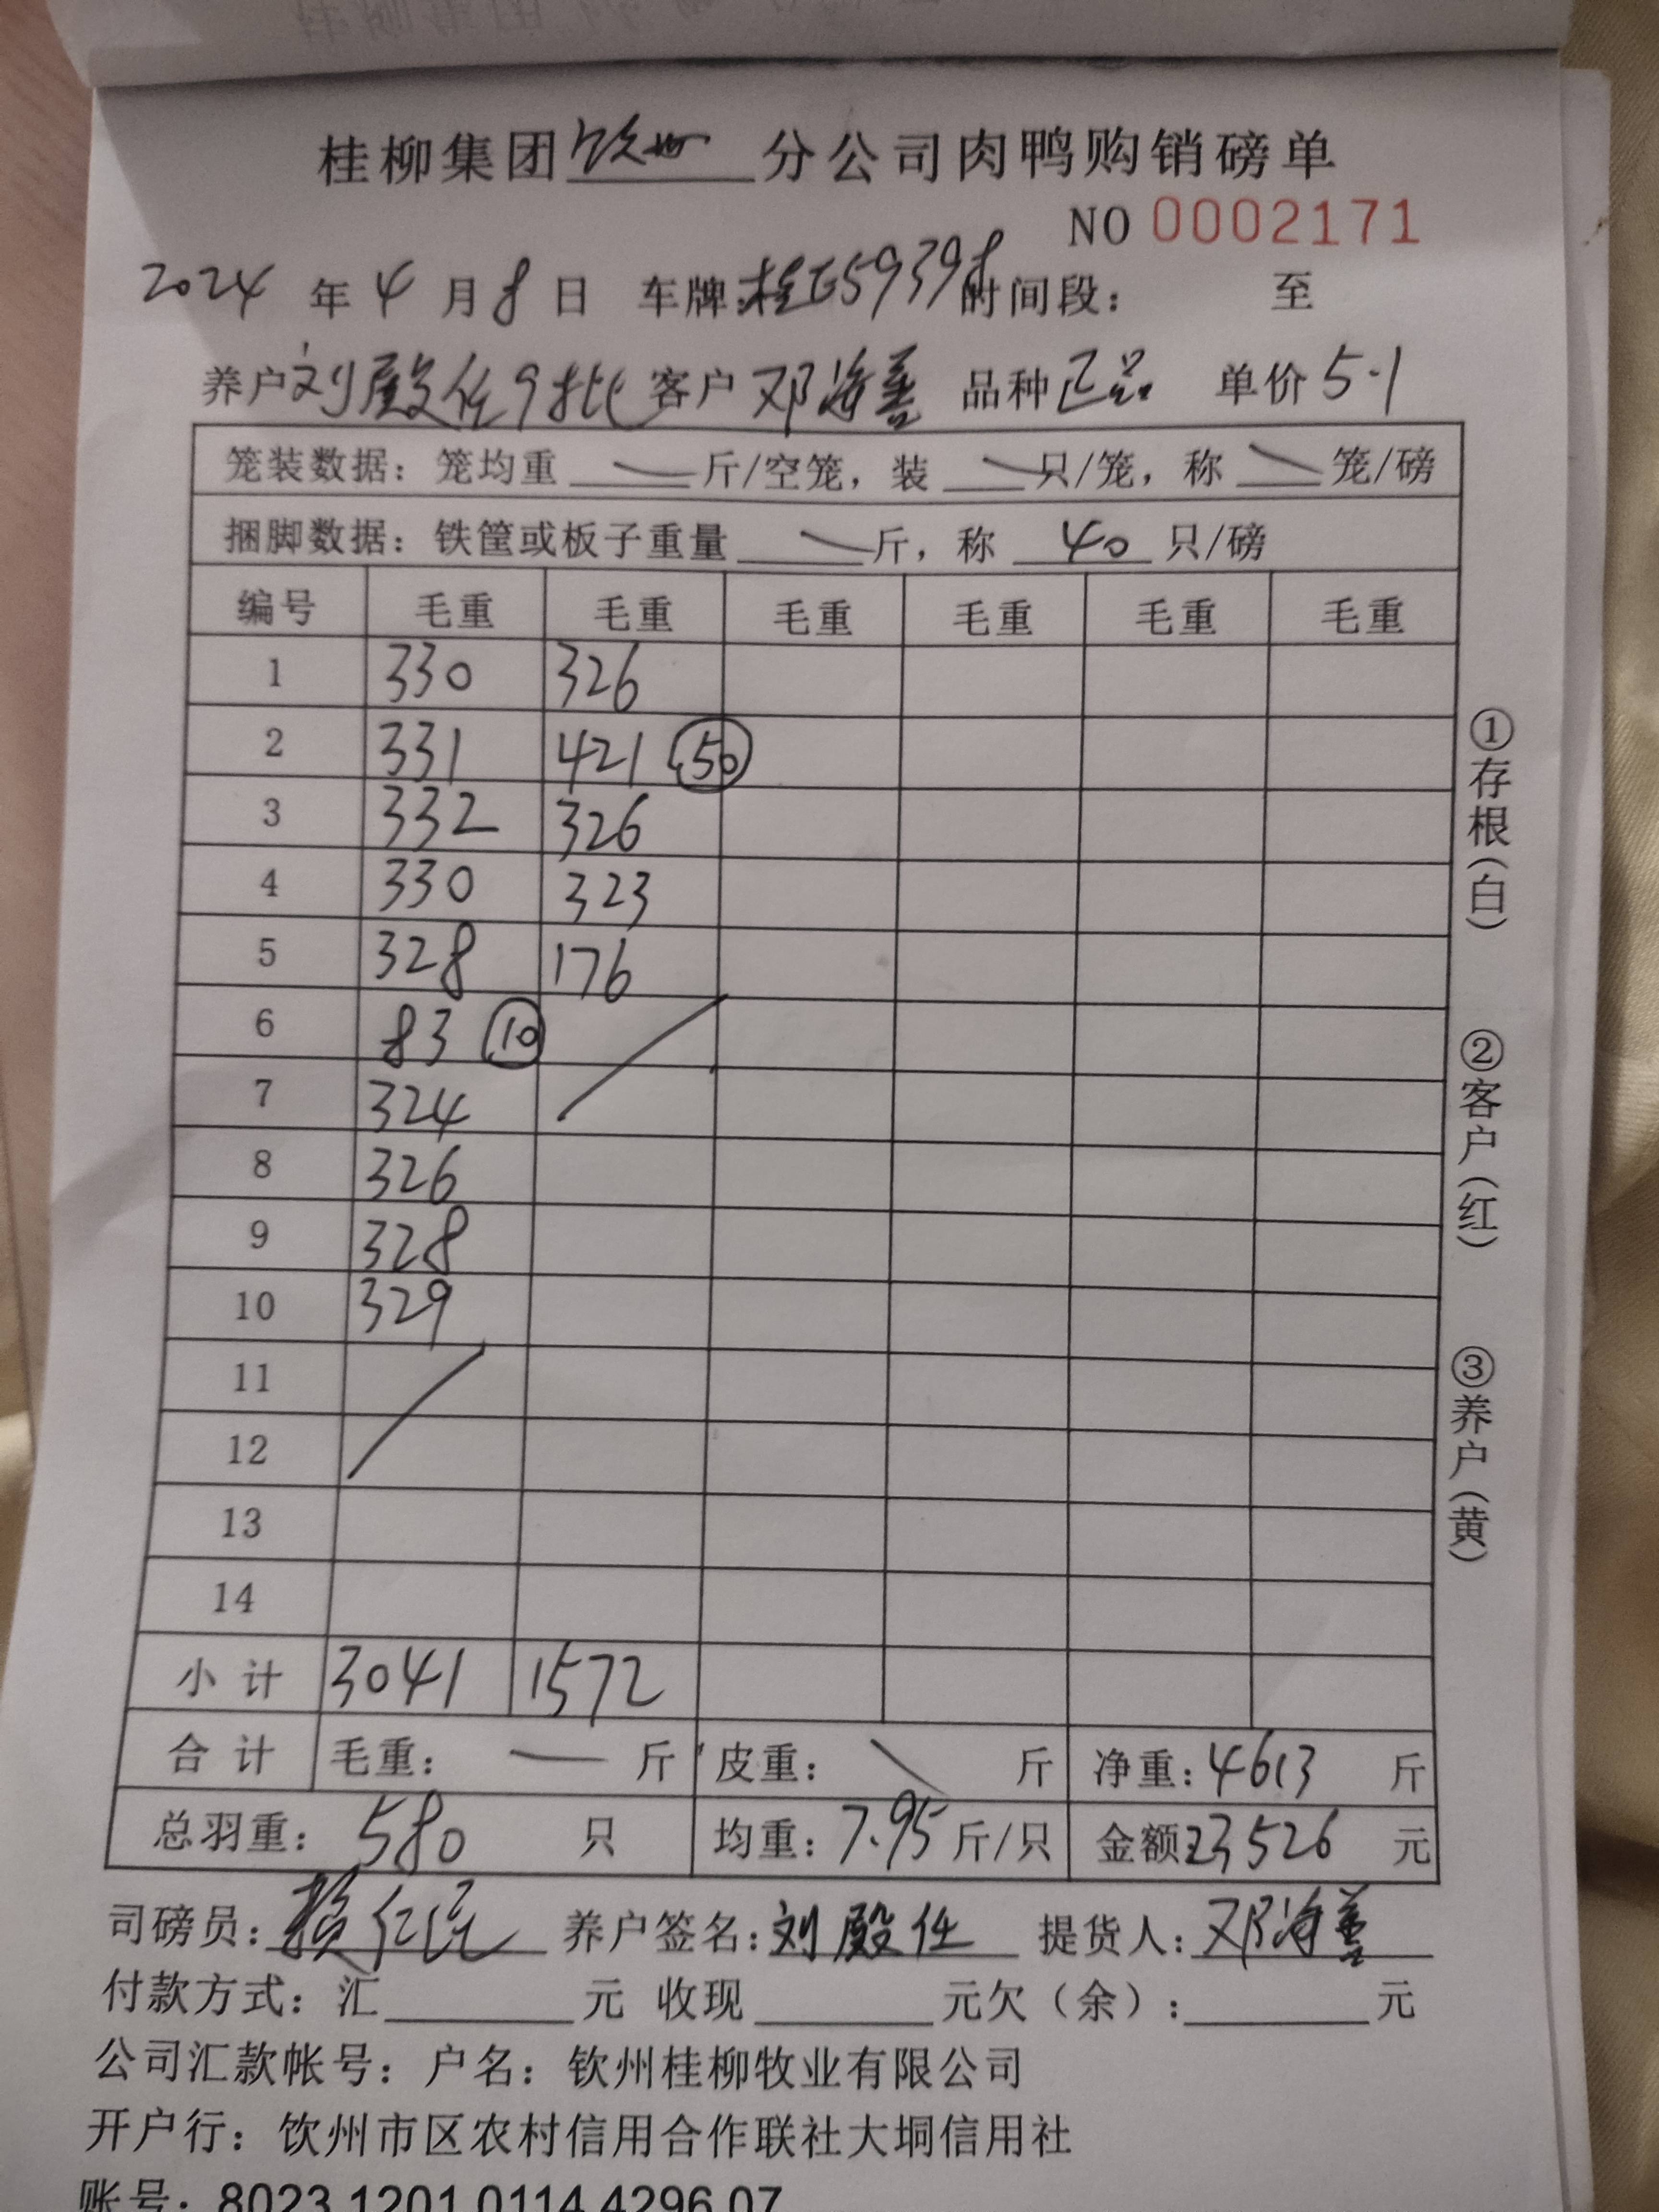 桂柳集团钦州分公司肉鸭购销磅单
NO 0002171
2024 年 4 月 8 日 车牌:桂E59398 时间段: 至
养户 刘殿任9批 客户 邓海善 品种 正品 单价 5.1
笼装数据: 笼均重 斤/空笼, 装 只/笼, 称 笼/磅
捆脚数据: 铁筐或板子重量 斤, 称 40 只/磅
编号 毛重 毛重 毛重 毛重 毛重 毛重
1 330 326
2 331 421 50
3 332 326
4 330 323
5 328 176
6 83 10
7 324
8 326
9 328
10 329
11
12
13
14
小计 3041 1572
合计 毛重: 斤 皮重: 斤 净重: 4613 斤
总羽重: 580 只 均重: 7.95 斤/只 金额: 23526 元
司磅员: 养户签名: 刘殿任 提货人: 邓海善
付款方式: 汇 元 收现 元欠(余): 元
公司汇款帐号: 户名: 钦州桂柳牧业有限公司
开户行: 钦州市区农村信用合作联社大垌信用社
账号: 8023 1201 0114 4296 07
①存根(白)
②客户(红)
③养户(黄)